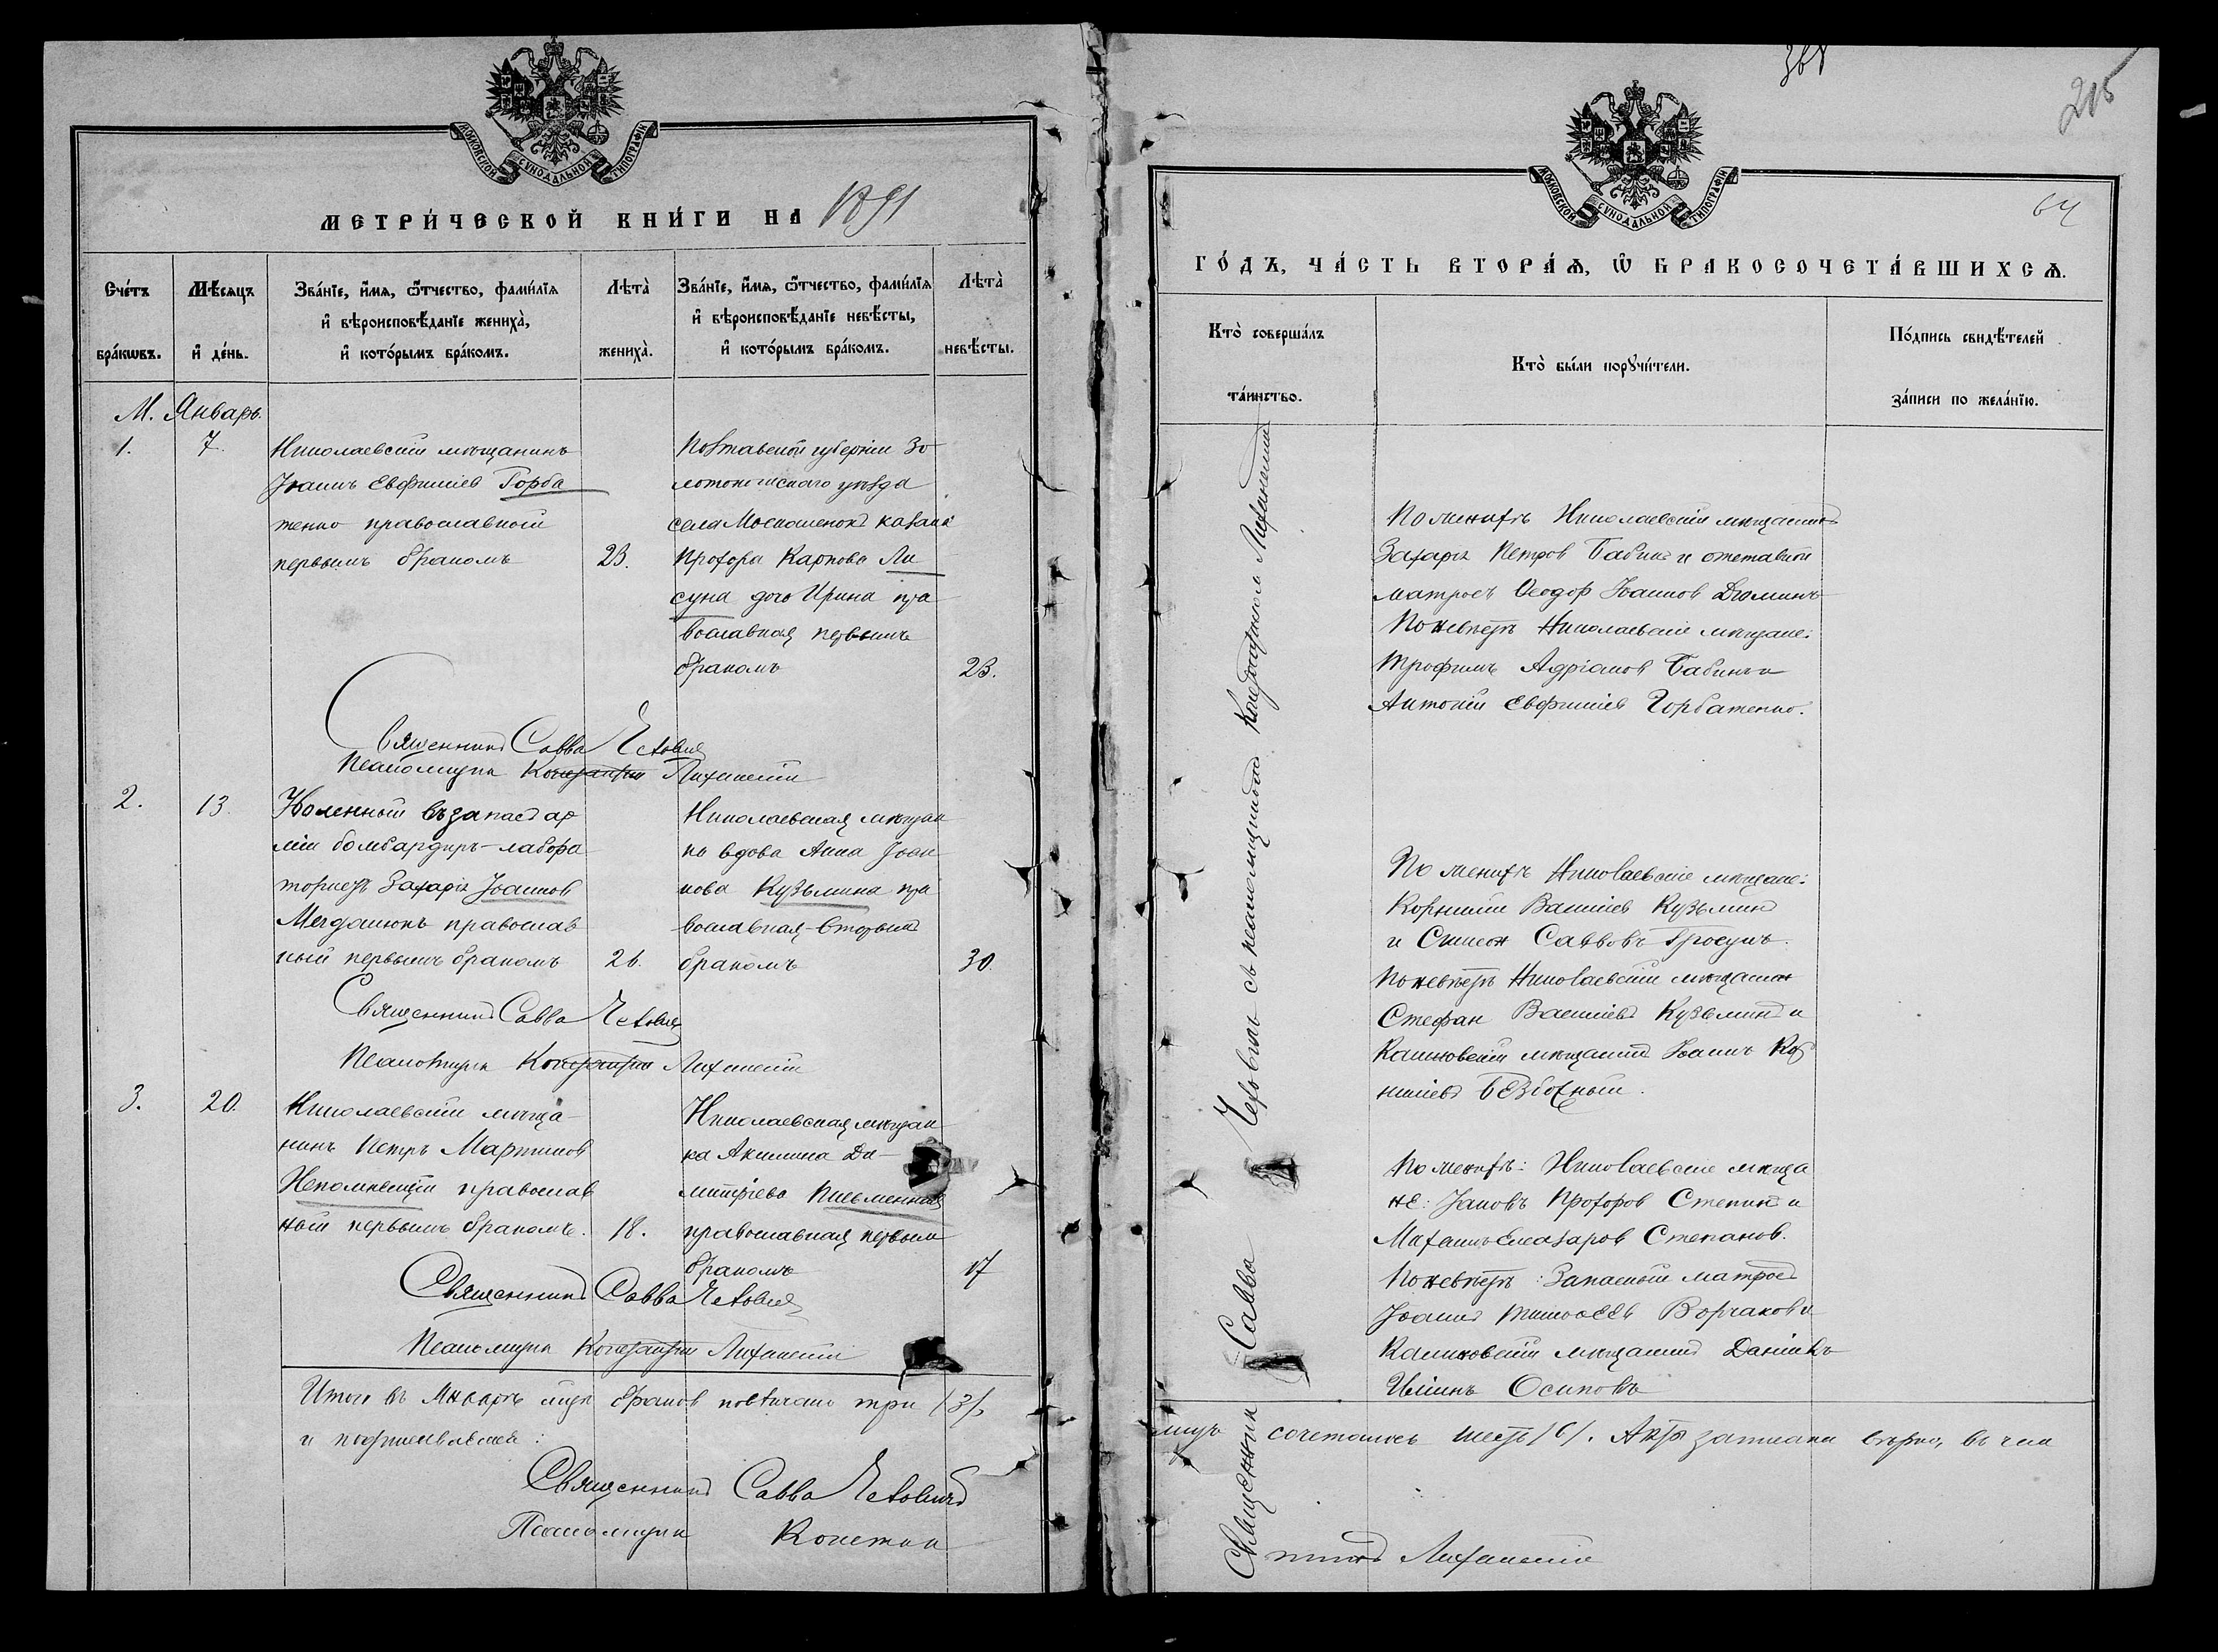 МОСКОВСКОЙ СѴНОДАЛЬНОЙ ТИПОГРАФІИ
МЕТРИ́ЧЕСКОЙ КНИ́ГИ НА 1891
Сче́тъ бра́кѡвъ.
Мѣ́сяцъ и҆ де́нь.
Зва́нїе, и҆́мѧ, ѻ҆́тчество, фами́лїѧ
и҆ вѣроисповѣ́данїе жениха̀,
и҆ кото́рымъ бра́комъ.
Лѣта̀ жениха̀.
Зва́нїе, и҆́мѧ, ѻ҆́тчество, фами́лїѧ
и҆ вѣроисповѣ́данїе невѣ́сты,
и҆ кото́рымъ бра́комъ.
Лѣта̀ невѣ́сты.
М. Январь.
1. 7.
Николаевскій мѣщанинъ
Іоаннъ Евфиміевъ Горба
тенко православный
первымъ бракомъ
23.
Полтавской губерніи Зо
лотоношскаго уѣзда
села Москаленокъ казака
Прохора Карпова Ли
суна дочь Ирина пра
вославная первымъ
бракомъ
23.
Священникъ Савва
Псаломщикъ Константинъ
2. 13.
Уволенный въ запасъ ар
міи бомбардиръ-лабора
тористъ Захарія Іоанновъ
православ
ный первымъ бракомъ
26.
Николаевская мѣщан
ка вдова Анна Іоан
нова Кузьмина пра
вославная вторымъ
бракомъ
30.
Священникъ Савва
Псаломщикъ Константинъ
3. 20.
Николаевскій мѣща
нинъ Петръ Мартиновъ
Непомнящій православ
ный первымъ бракомъ.
18.
Николаевская мѣщан
ка Акилина Ди-
митріева Письменная
православная первым
бракомъ
17
Священникъ Савва
Псаломщикъ Константинъ
Итого въ Январѣ мцѣ браков повѣнчано три /3/,
и
Священникъ Савва
Псаломщикъ Констан
215
64
МОСКОВСКОЙ СѴНОДАЛЬНОЙ ТИПОГРАФІИ
ГО́ДЪ, ЧА́СТЬ ВТОРА́Ѧ, Ѡ҆ БРАКОСОЧЕТА́ВШИХСѦ.
Кто̀ соверша́лъ та́инство.
Кто̀ бы́ли порꙋчи́тели.
По́дпись свидѣ́телей за́писи по жела́нїю.
Священник Савва съ псаломщикомъ Константиномъ
По женихѣ Николаевскій мѣщанинъ
Захарія Петров Бабинъ и отставной
матросъ Ѳеодор Іоаннов Дюминъ
По невѣстѣ Николаевскіе мѣщане:
Трофимъ Адріанов Бабинъ и
Антоній Евфиміев Горбатенко.
По женихѣ Николаевскіе мѣщане:
Корнилій Василіев Кузьминъ
и Симеон Саввовъ
По невѣстѣ Николаевскій мѣщанинъ
Стефан Василіевъ Кузьминъ и
мѣщанинъ Іоаннъ Кор
ниліевъ Беззубный.
По женихѣ: Николаевскіе мѣща
не: Іаковъ Прохоров Степинъ и
Михаилъ Елеазаров Степанов.
По невѣстѣ: Запасный матросъ
Іоаннъ и
мѣщанинъ Даніилъ
Осиповъ
лицъ сочеталось шесть /6/. Акты записаны вѣрно, въ чем
тинъ